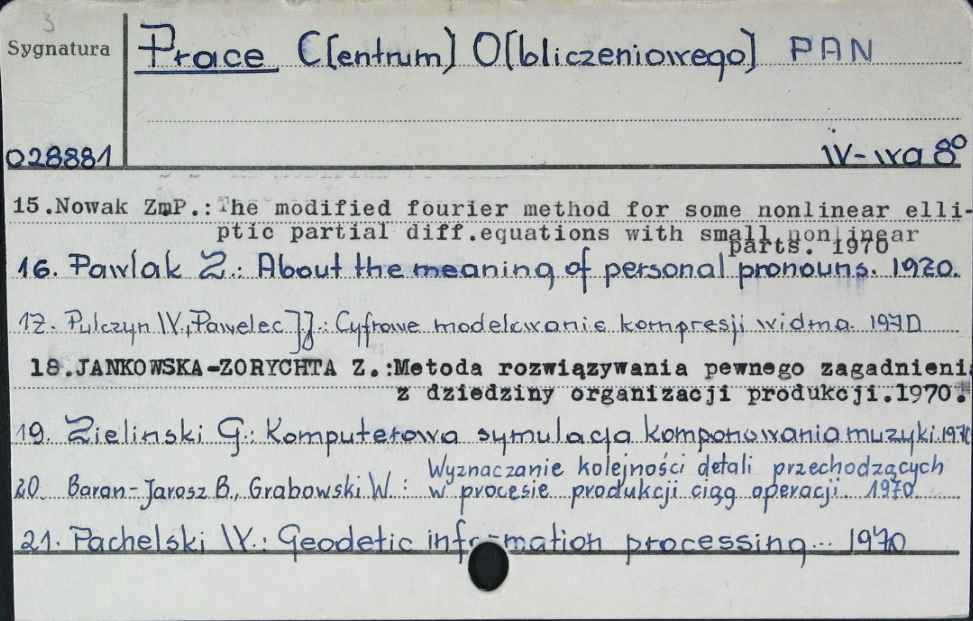 3
Sygnatura
Prace C[entrum] O[bliczeniowego] PAN
028881
W-wa 8°
15.Nowak ZmP.: The modified fourier method for some nonlinear elli-
ptic partial diff.equations with small nonlinear
parts. 1970
16. Pawlak Z.: About the meaning of personal pronouns. 1970.
17. Pulczyn W., Pawelec JJ.: Cyfrowe modelowanie kompresji widma. 1970
18.JANKOWSKA-ZORYCHTA Z.:Metoda rozwiązywania pewnego zagadnieni
z dziedziny organizacji produkcji.1970.
19. Zielinski G.: Komputerowa symulacja komponowania muzyki. 1970
20. Baran-Jarosz B., Grabowski W.: Wyznaczanie kolejności detali przechodzących
w procesie produkcji ciąg operacji. 1970
21. Pachelski W.: Geodetic information processing... 1970